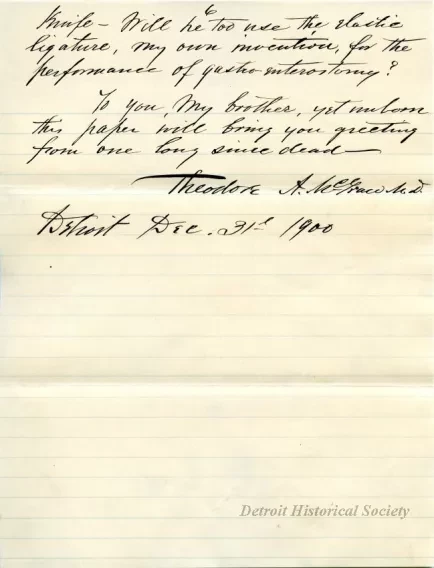 Knife - Will he too use the elastic
ligature, my own invention, for the
performance of gastro enterostomy?
To you, My brother, yet unborn
this paper will bring you greeting
from one long since dead —
Theodore A. McGraw M.D.
Detroit Dec. 31st 1900
Detroit Historical Society